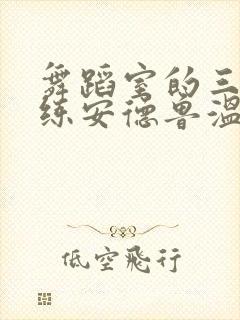 舞蹈室的三
练安德鲁温
低空飛行